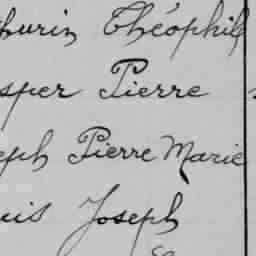 hurin Théophil
sper Pierre
eph Pierre Marie
uis Joseph